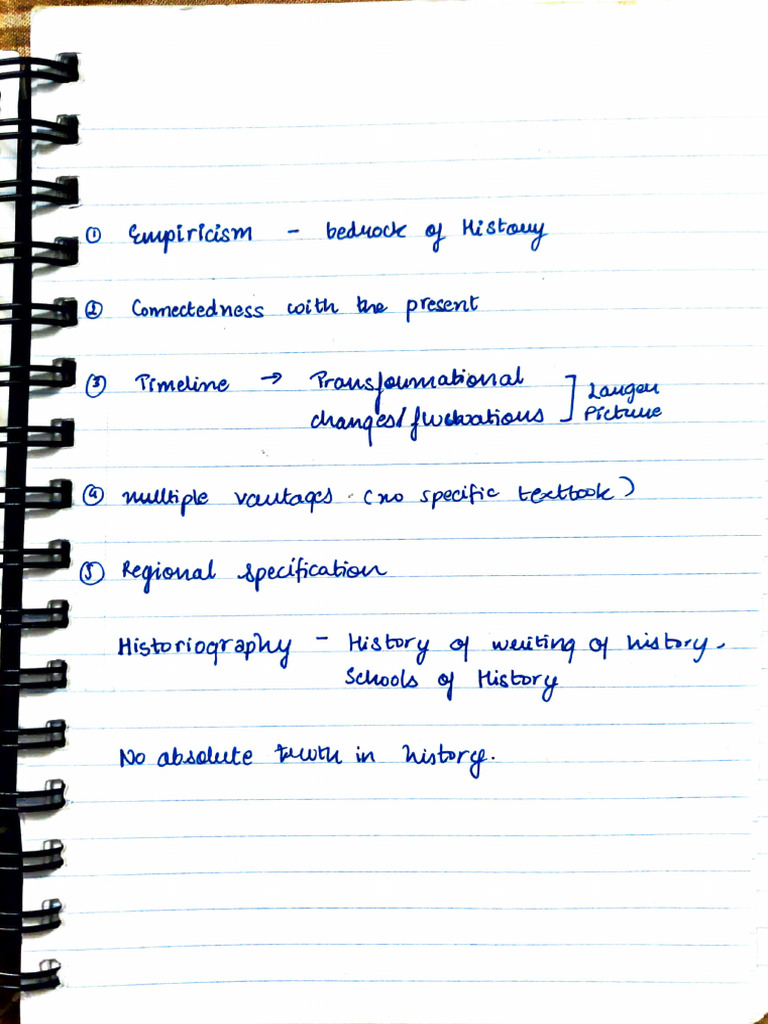 ① Empiricism - bedrock of History
② Connectedness with the present
③ Timeline → Transformational
changes/fluctuations ] Larger Picture
④ multiple vantages (no specific textbook)
⑤ Regional specification
Historiography - History of writing of history.
Schools of History
No absolute truth in history.